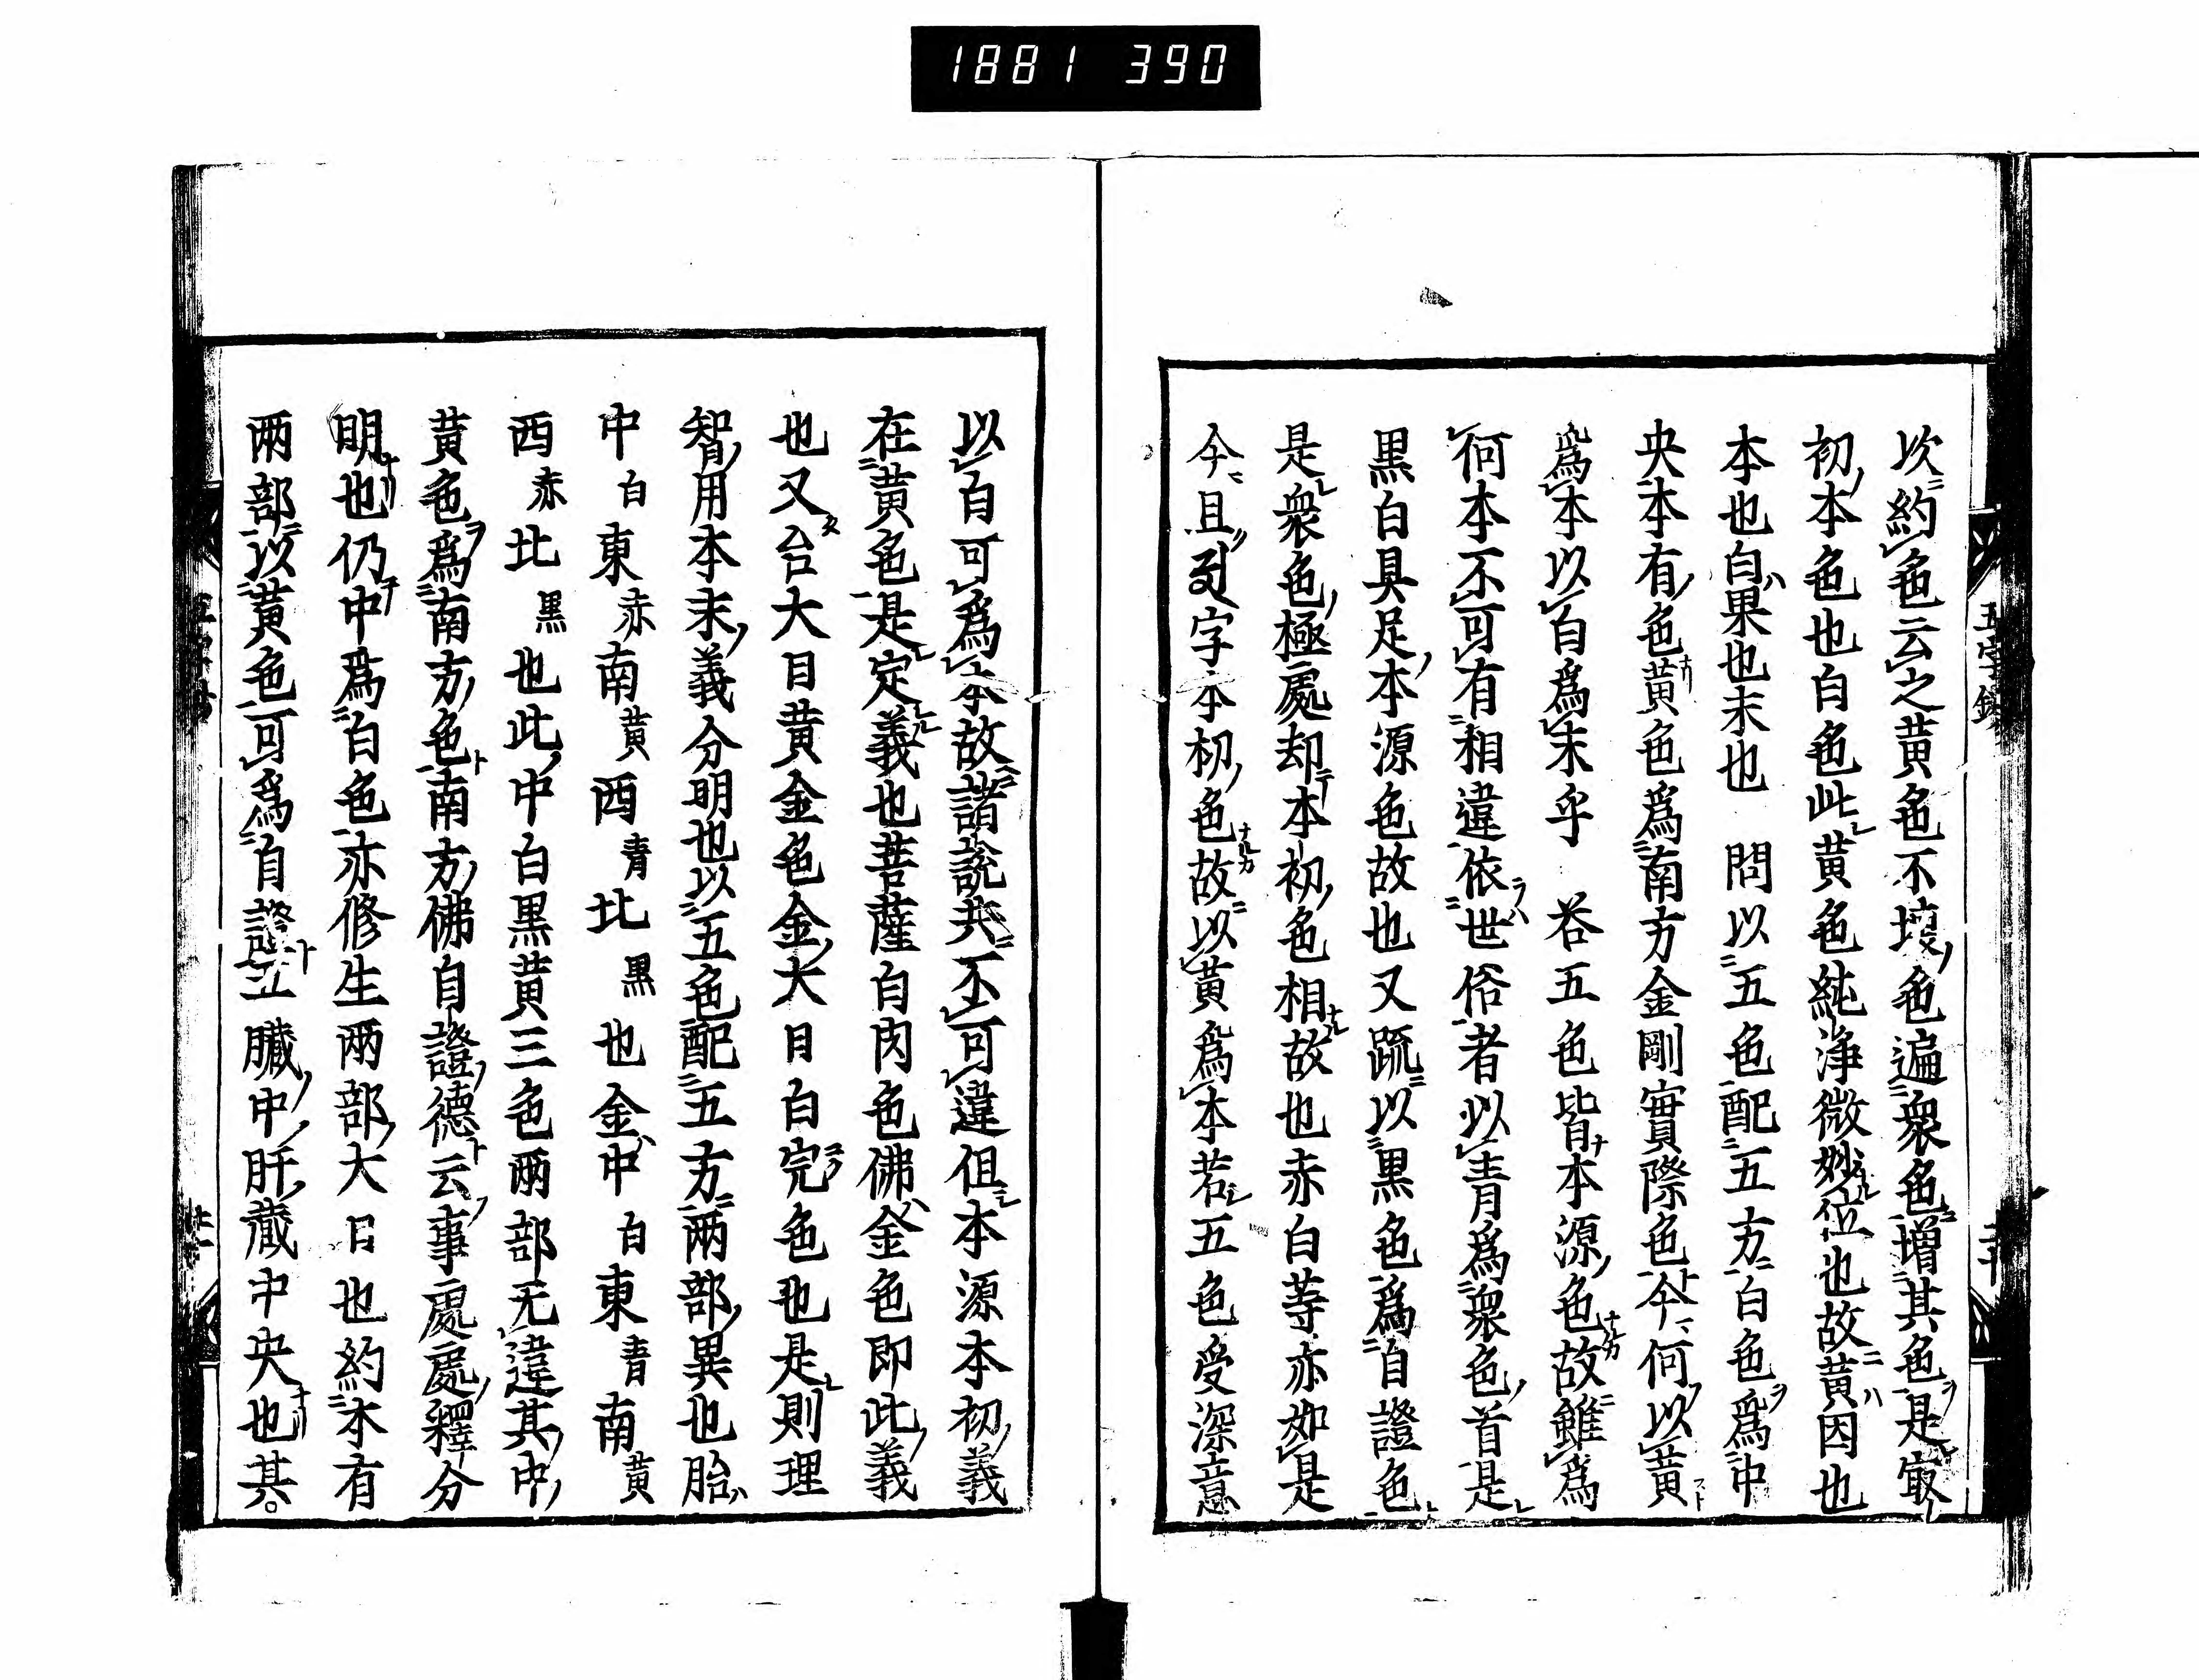 1881 390
次約色云之黄色不壊色遍衆色増其色是㝡
初本色也白色此黄色純浄微妙位也故黄因也
本也白果也末也　問以五色配五方白色為中
央本有色黄色為南方金剛實際色今何以黄
為本以白為末乎　荅五色皆本源色故雖為
何本不可有相違依世俗者以青為衆色首是
黒白具足本源色故也又疏以黒色為自證色
是衆色極處却本初色相故也赤白䓁亦如是
今且字本初色故以黄為本若五色受深意
以白可為本故諸説共不可違但本源本初義
在黄色是定義也菩薩白肉色佛金色即此義
也又台大日黄金色金大日白完色也是則理
智用本末義分明也以五色配五方両部異也胎
中白東赤南黄西青北黒也金中白東青南黄
西赤北黒也此中白黒黄三色両部无違其中
黄色為南方色南方佛自證德云事處處釋分
明也仍中為白色亦修生両部大日也約本有
両部以黄色可為自證五臓中肝蔵中央也其